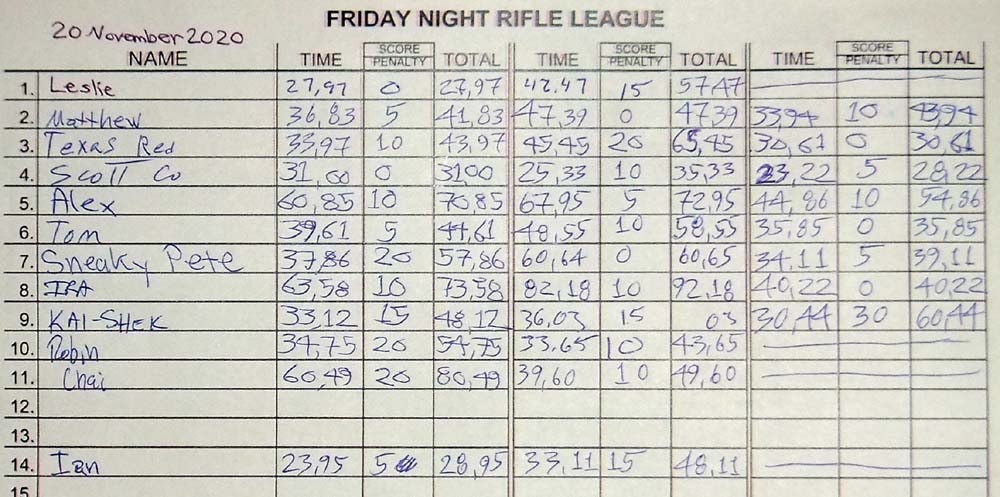 FRIDAY NIGHT RIFLE LEAGUE
20 November 2020
NAME TIME SCORE PENALTY TOTAL TIME SCORE PENALTY TOTAL TIME SCORE PENALTY TOTAL
1. Leslie 27,97 0 27,97 42.47 15 57.47
2. Matthew 36,83 5 41,83 47,39 0 47,39 33,94 10 43,94
3. Texas Red 33,97 10 43,97 45,45 20 65,45 30,61 0 30,61
4. Scott Co 31,00 0 3100 25,33 10 35,33 23,22 5 28,22
5. Alex 60,85 10 70,85 67,95 5 72,95 44,86 10 54,86
6. Tom 39,61 5 44,61 48,55 10 58,55 35,85 0 35,85
7. Sneaky Pete 37,86 20 57,86 60,64 0 60,65 34,11 5 39,11
8. IRA 63,58 10 73,58 82,18 10 92,18 40,22 0 40,22
9. KAI-SHEK 33,12 15 48,12 36,03 15 03 30,44 30 60,44
10. Robin 34,75 20 54,75 33.65 10 43,65
11. Chai 60,49 20 80,49 39,60 10 49,60
12.
13.
14. Ian 23,95 5 28,95 33,11 15 48,11
15